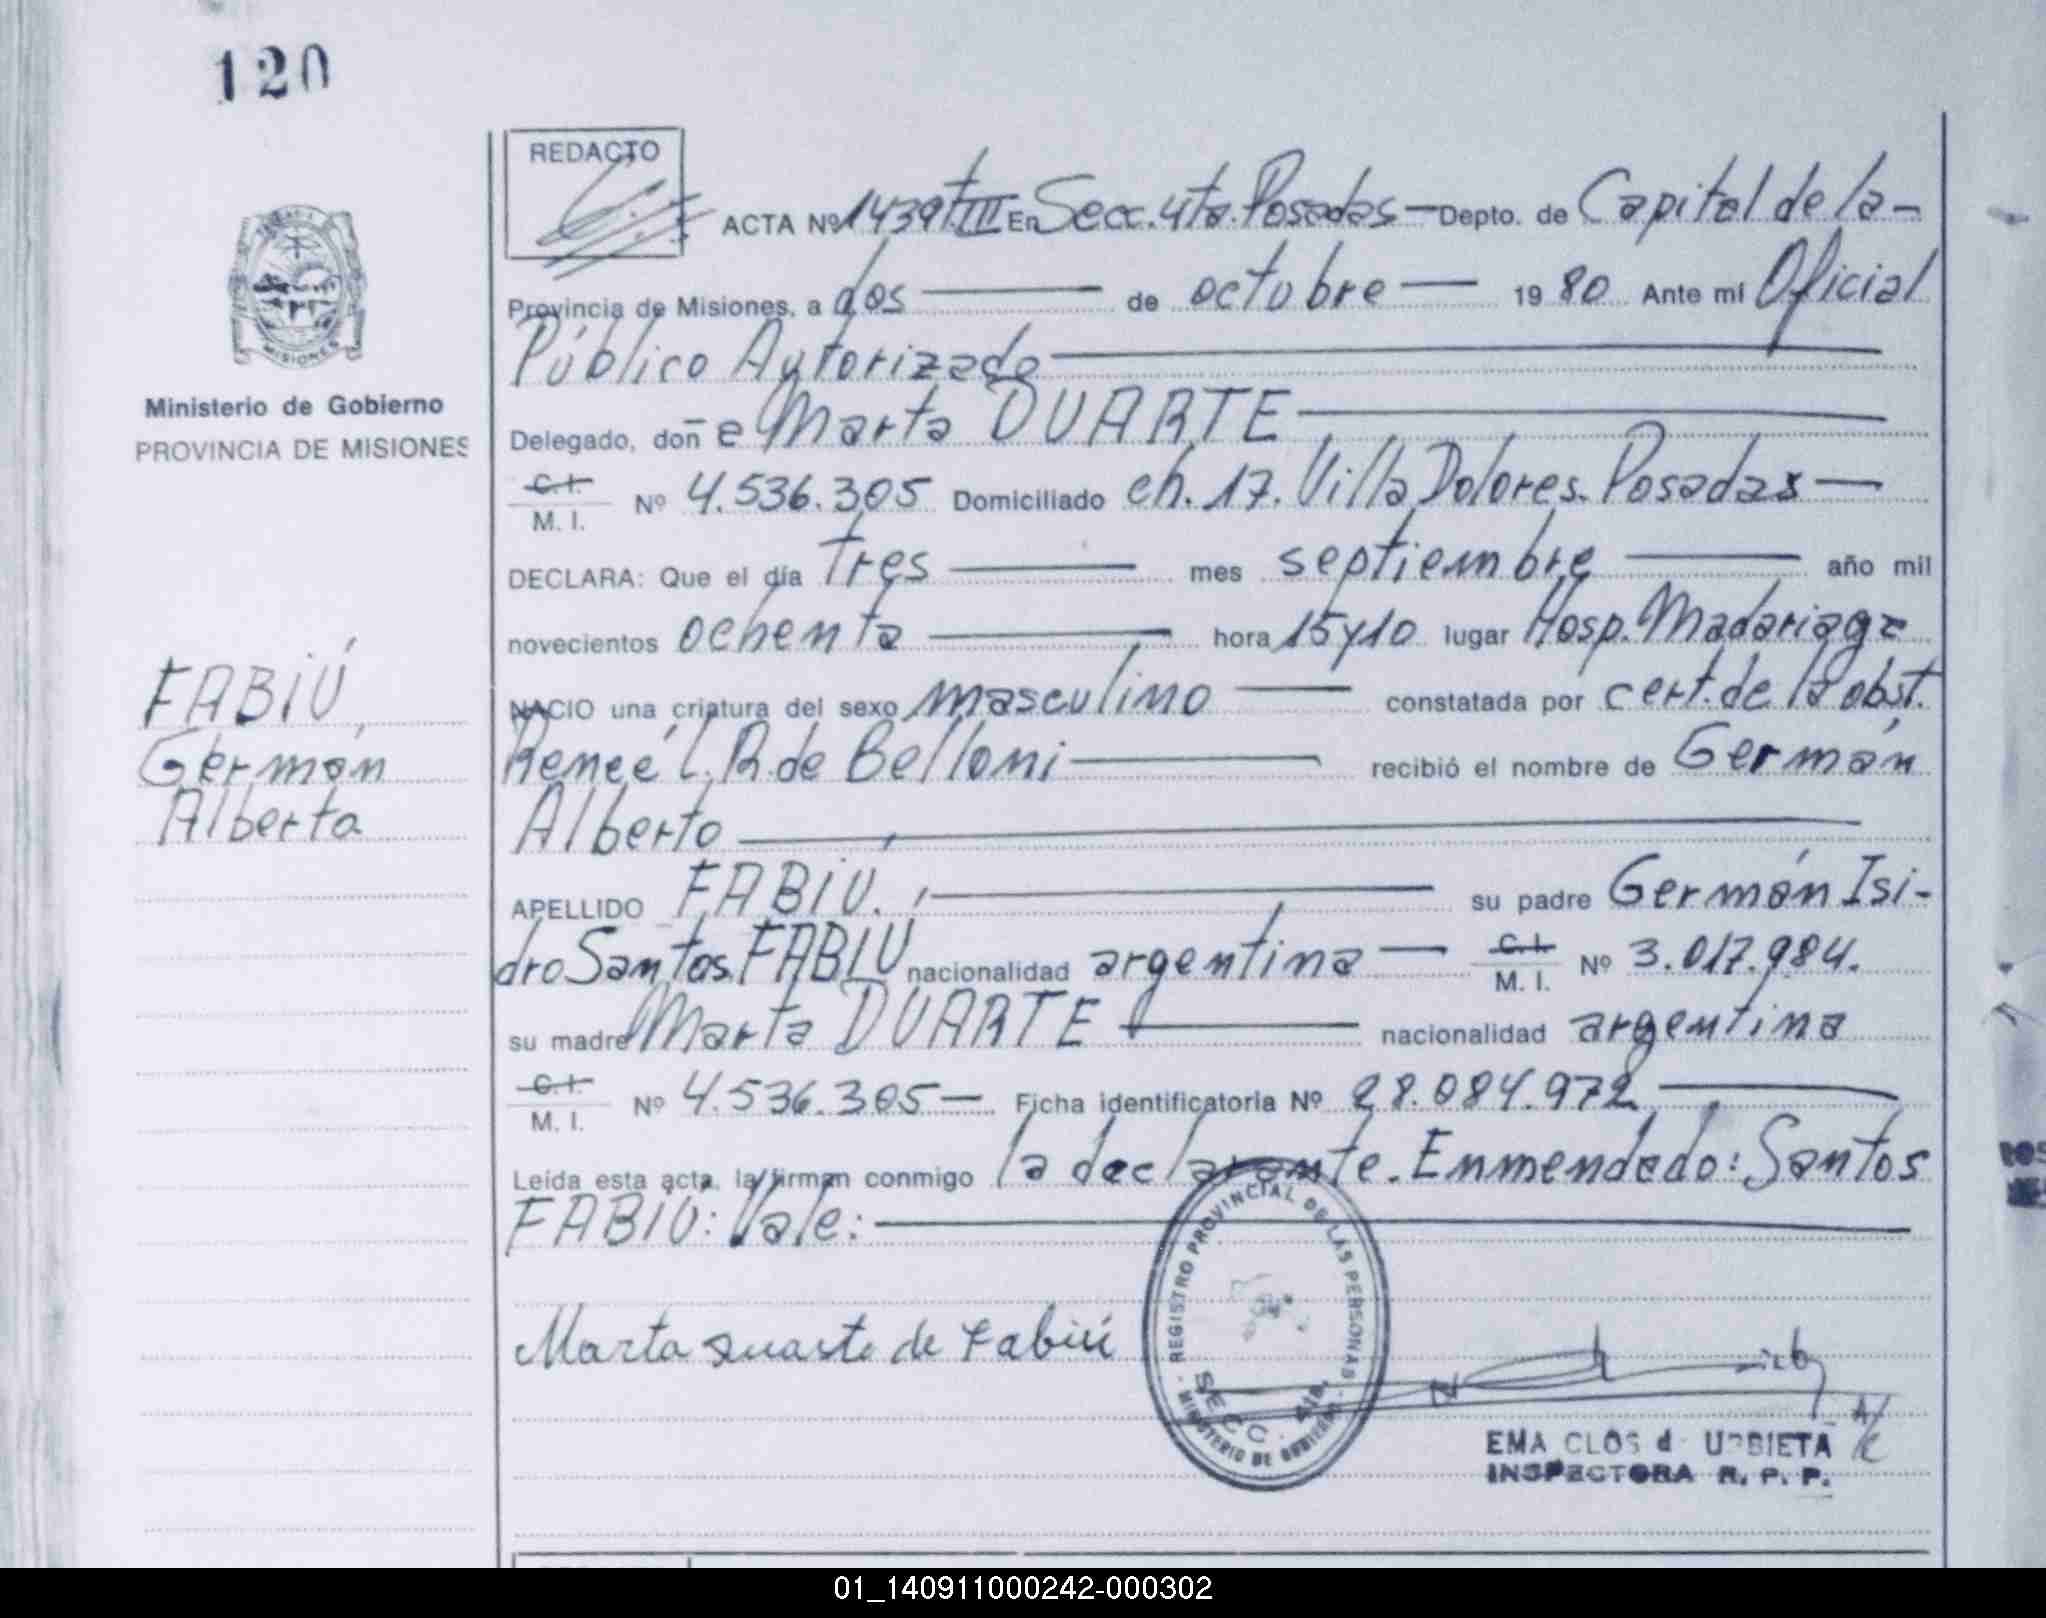 120
REDACTO
ACTA Nº 1439 T III En Secc. 4ta. Posadas — Depto. de Capital de la -
Provincia de Misiones, a dos de octubre 19 80 Ante mi Oficial
Público Autorizado
MISIONES
Ministerio de Gobierno
PROVINCIA DE MISIONES
Delegado, don e Marta DUARTE
C. I.
M. I. Nº 4.536.305 Domiciliado ch. 17. Villa Dolores. Posadas —
DECLARA: Que el día tres mes septiembre año mil
novecientos ochenta hora 15y10 lugar Hosp. Madariaga
NACIO una criatura del sexo masculino constatada por cert. de la obst.
Reneé L. R. de Belloni recibió el nombre de Germán
Alberto
FABIÚ,
Germán
Alberto
APELLIDO FABIÚ. su padre Germán Isi-
dro Santos FABIÚ nacionalidad argentina — C. I.
M. I. Nº 3.017.984.
su madre Marta DUARTE nacionalidad argentina
C. I.
M. I. Nº 4.536.305 — Ficha identificatoria Nº 28.084.972
Leída esta acta, la firman conmigo la declarante. Enmendado: Santos
FABIÚ: Vale:
Marta Duarte de Fabiú
REGISTRO PROVINCIAL DE LAS PERSONAS
SECC. 4ta.
MINISTERIO DE GOBIERNO
EMA CLOS d URBIETA
INSPECTORA R. P. P.
01_140911000242-000302